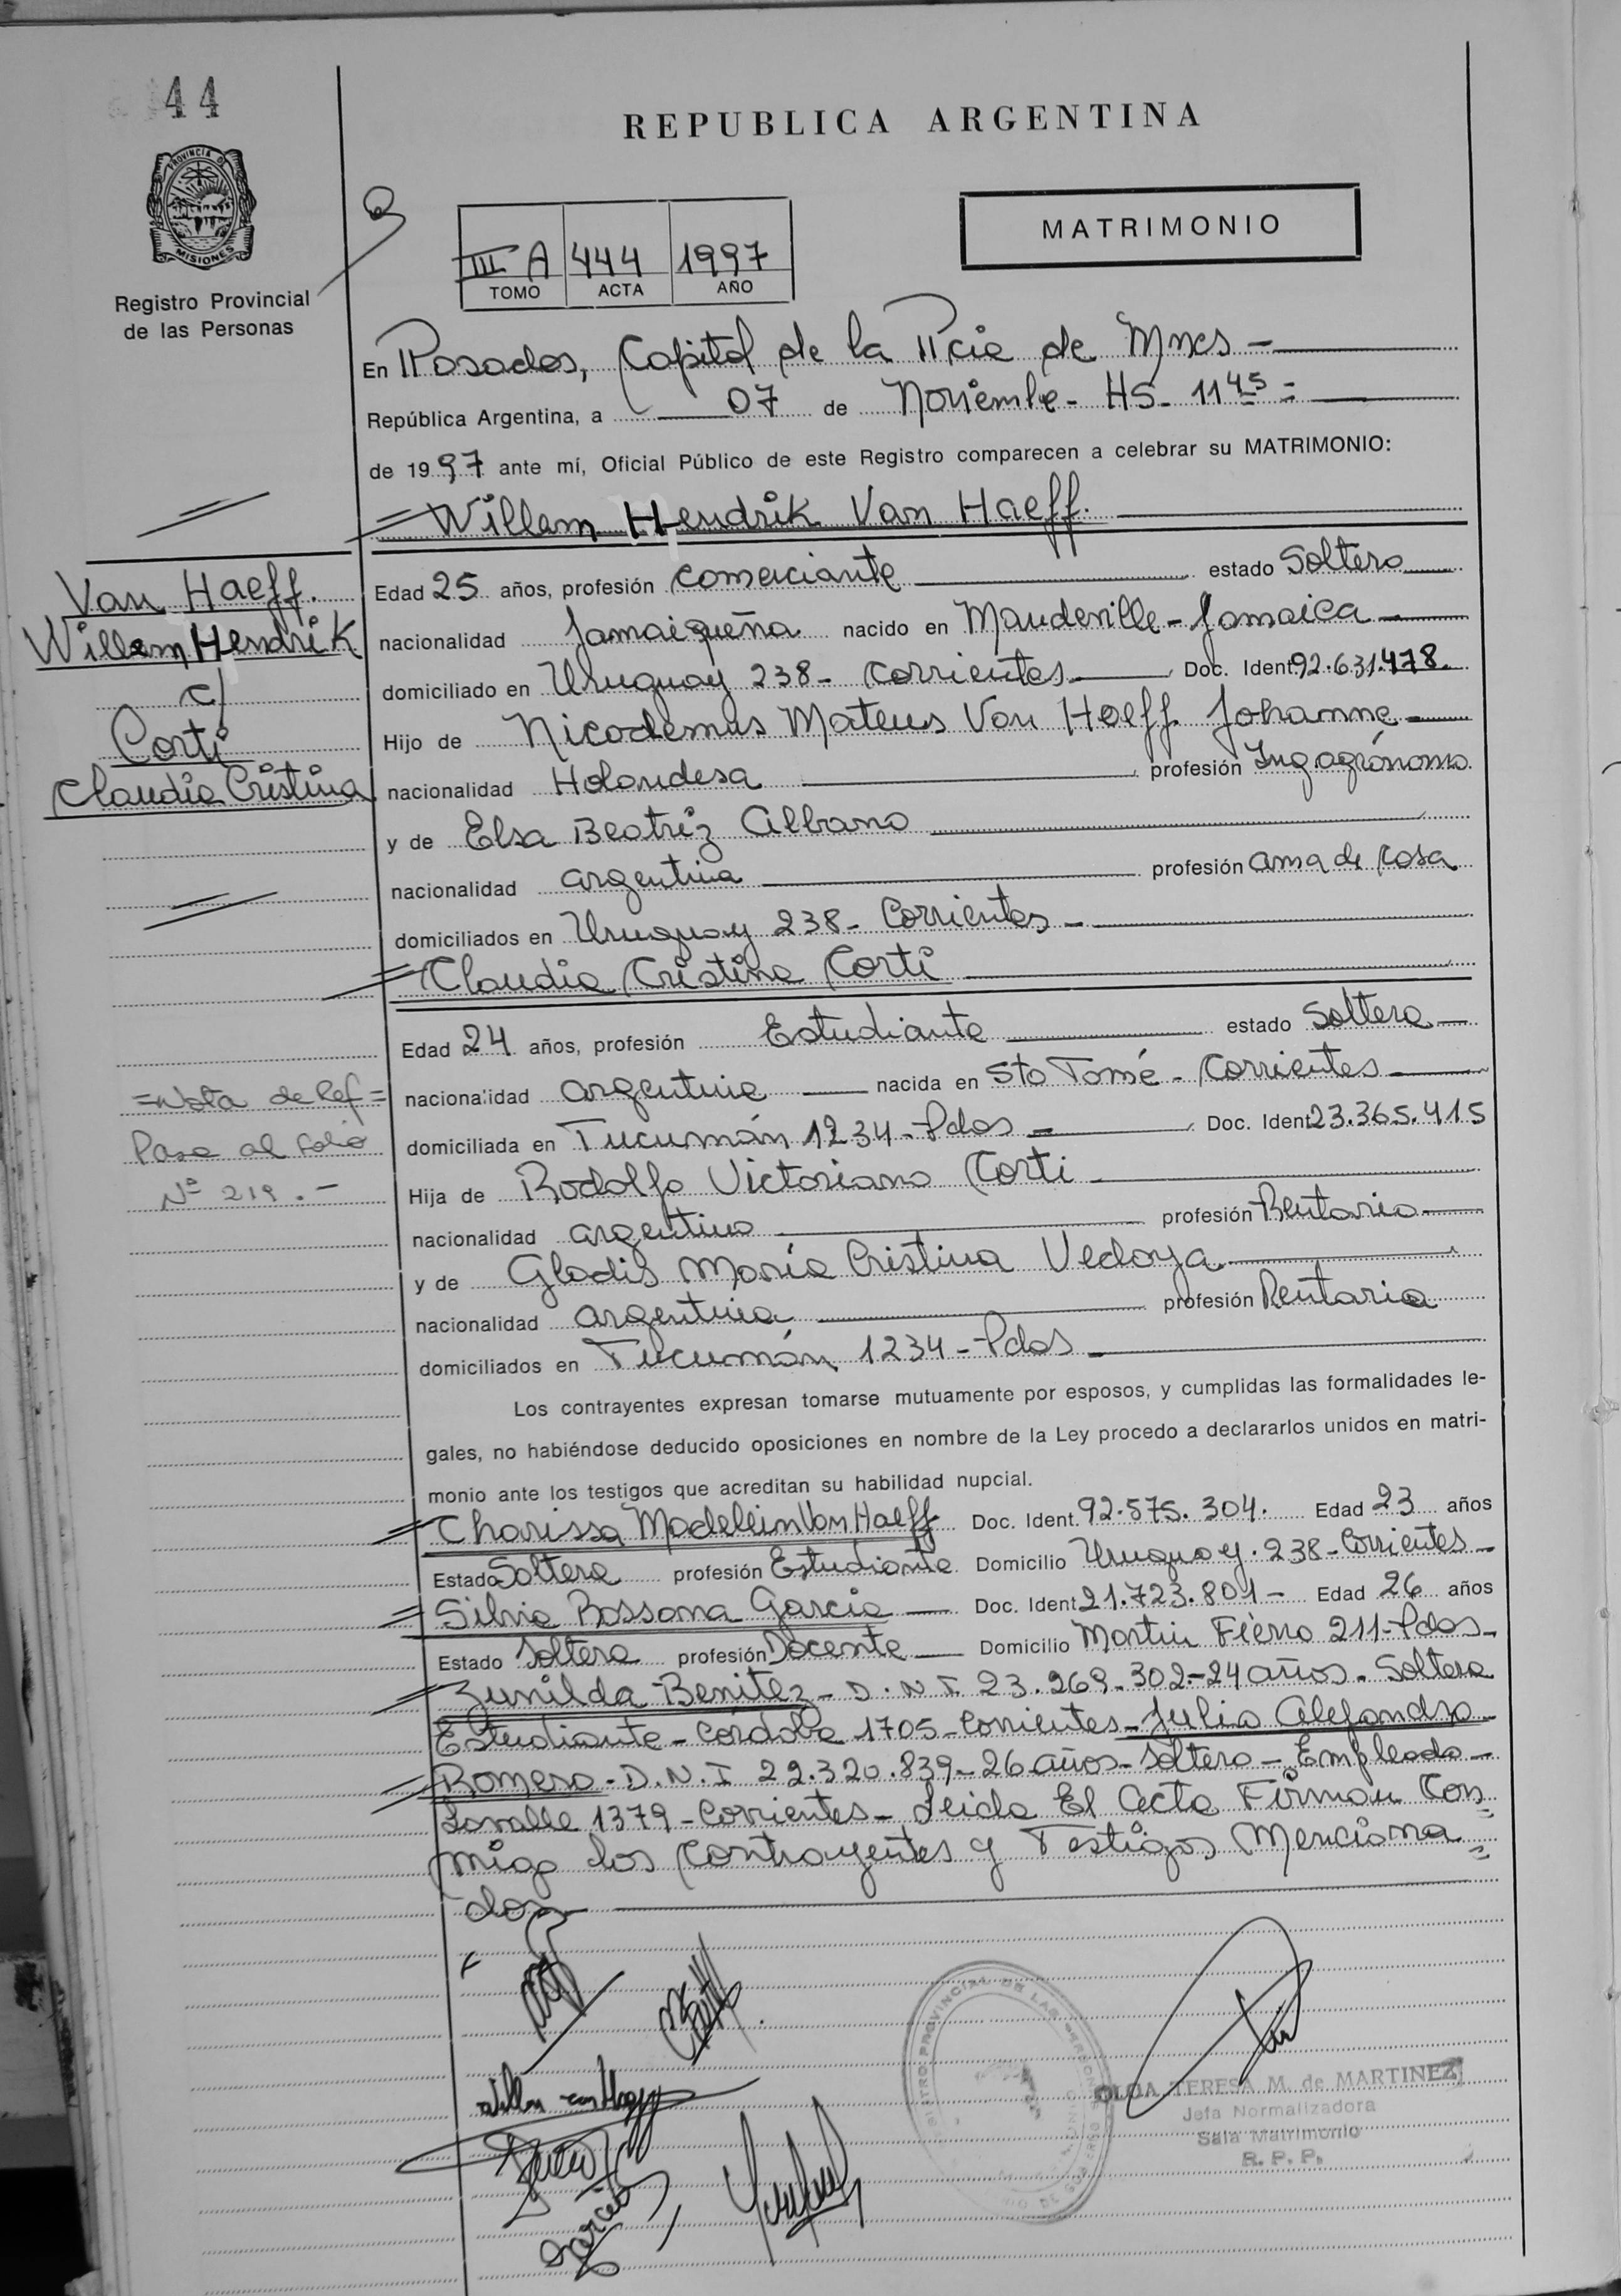 44
REPUBLICA ARGENTINA
PROVINCIA DE
MISIONES
Registro Provincial
de las Personas
MATRIMONIO
III A 444 1997
TOMO ACTA AÑO
En Posadas, Capital de la Pcia de Mnes -
República Argentina, a 07 de Noviembre - HS - 11 45 =
de 1997 ante mí, Oficial Público de este Registro comparecen a celebrar su MATRIMONIO:
Willem Hendrik Van Haeff.
Van Haeff.
Willem Hendrik
c/
Corti
Claudia Cristina
Edad 25 años, profesión comerciante estado Soltero
nacionalidad Jamaiqueña nacido en Mandeville - Jamaica
domiciliado en Uruguay 238 - Corrientes Doc. Ident 92.631.478.
Hijo de Nicodemus Mateus Van Haeff Johanne
nacionalidad Holandesa profesión Ing agrónomo
y de Elsa Beatriz Albano
nacionalidad argentina profesión ama de casa
domiciliados en Uruguay 238 - Corrientes -
Claudia Cristina Corti
Edad 24 años, profesión Estudiante estado Soltera
nacionalidad argentina nacida en Sto Tomé - Corrientes
domiciliada en Tucumán 1234 - Pdas - Doc. Ident 23.365.415
Hija de Rodolfo Victoriano Corti
nacionalidad argentino profesión Rentario
y de Gladis María Cristina Vedoya
nacionalidad argentina profesión Rentaria
domiciliados en Tucumán 1234 - Pdas
=Nota de Ref=
Pasa al folio
Nº 219.-
Los contrayentes expresan tomarse mutuamente por esposos, y cumplidas las formalidades le-
gales, no habiéndose deducido oposiciones en nombre de la Ley procedo a declararlos unidos en matri-
monio ante los testigos que acreditan su habilidad nupcial.
Charissa Madellein Van Haeff Doc. Ident. 92.575.304. Edad 23 años
Estado Soltera profesión Estudiante Domicilio Uruguay 238 - Corrientes -
Silvia Rossana Garcia Doc. Ident 21.723.801 - Edad 26 años
Estado Soltera profesión Docente Domicilio Martin Fierro 211 - Pdas -
Zunilda Benitez - D.N.I. 23.269.302 - 24 años - Soltera
Estudiante - Córdoba 1705 - Corrientes - Julio Alejandro
Romero - D.N.I 22.320.839 - 26 años - Soltero - Empleado -
Lavalle 1379 - Corrientes - Leida El Acta Firman Con=
migo los Contrayentes y Testigos Menciona=
dos -
OLGA TERESA M. de MARTINEZ
Jefa Normalizadora
Sala Matrimonio
R. P. P.